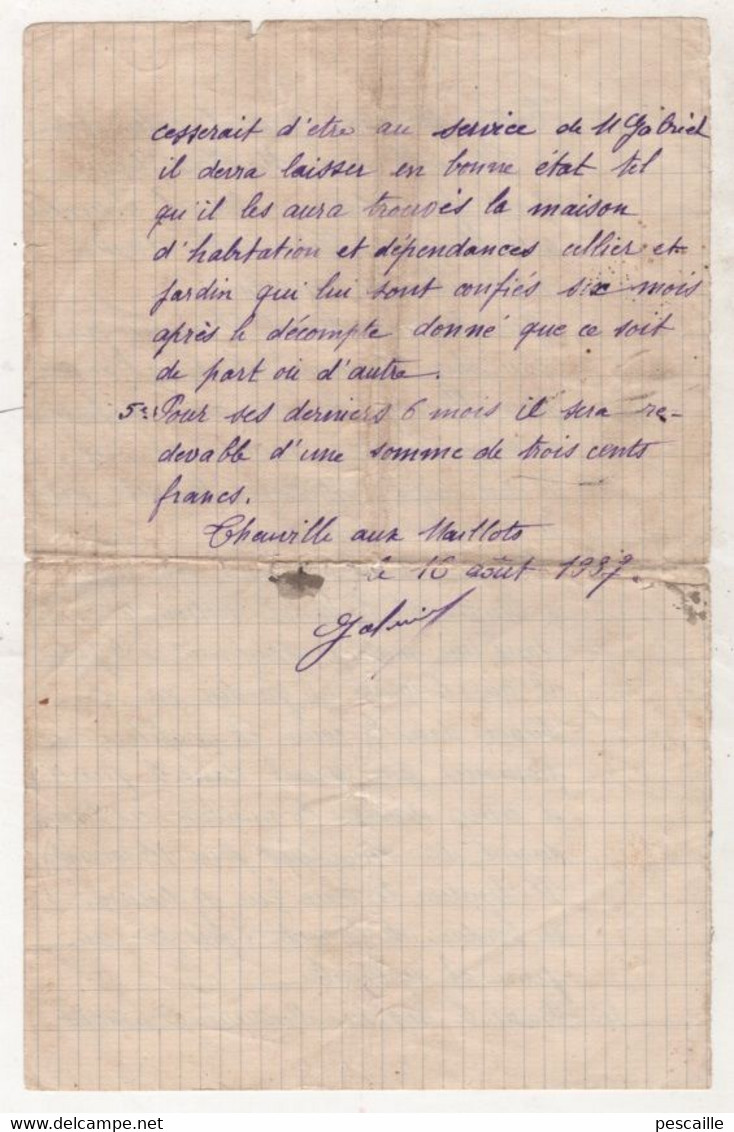 cesserait d'etre au service de M Gabriel
il devra laisser en bonne état tel
qu'il les aura trouvés la maison
d'habitation et dépendances cellier et
jardin qui lui sont confiés six mois
après le décompte donné que ce soit
de part où d'autre.
5° Pour ses derniers 6 mois il sera re-
devable d'une somme de trois cents
francs.
Theuville aux Maillots
le 16 août 1937.
Gabriel
pescaille